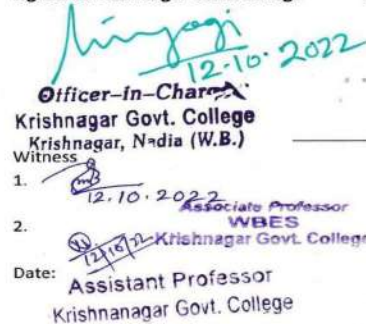 12.10.2022
Officer-in-Charge
Krishnagar Govt. College
Krishnagar, Nadia (W.B.)
Witness
1.
12.10.2022
Associate Professor
WBES
2.
12/10/22
Krishnagar Govt. College
Date:
Assistant Professor
Krishnanagar Govt. College